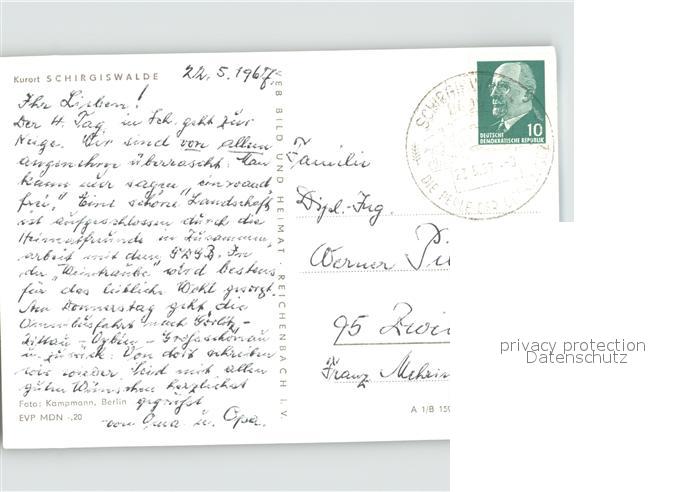 Kurort SCHIRGISWALDE
22.5.1967.
Ihr Lieben!
Der 4. Tag in Sch. geht zur
Neige. Wir sind von allem
angenehm überrascht. Man
kann nur sagen "einwand
frei". Eine schöne Landschaft
ist aufgeschlossen durch die
Heimatfreunde in Zusammen
arbeit mit dem FDGB. In
der "Weintraube" wird bestens
für das leibliche Wohl gesorgt.
Am Donnerstag geht die
Omnibusfahrt nach Görlitz -
Zittau - Oybin - Großschönau
u. zurück. Von dort schreiben
wir wieder. Seid mit allen
guten Wünschen herzlichst
gegrüßt
von Oma u. Opa.
Foto: Kampmann, Berlin
EVP MDN -,20
VEB BILD UND HEIMAT REICHENBACH I. V.
DEUTSCHE
DEMOKRATISCHE REPUBLIK
10
DIE PERLE DER
Familie
Dipl.-Ing.
Werner
95
Franz
A 1/B 159
privacy protection
Datenschutz